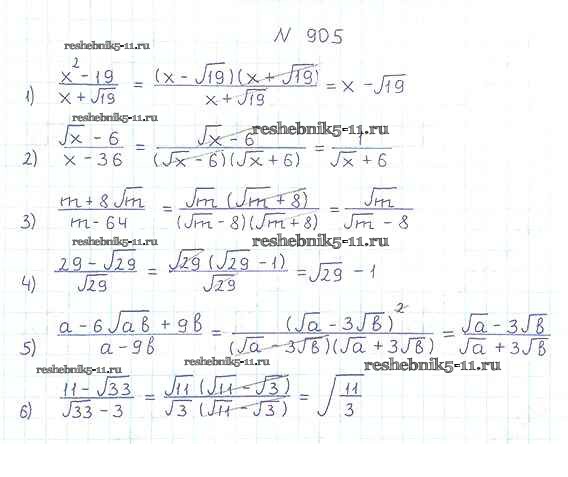 N 905
reshebnik5-11.ru
1) (x² - 19)/(x + √19) = ((x - √19)(x + √19))/(x + √19) = x - √19
reshebnik5-11.ru
2) (√x - 6)/(x - 36) = (√x - 6)/((√x - 6)(√x + 6)) = 1/(√x + 6)
reshebnik5-11.ru
reshebnik5-11.ru
3) (m + 8√m)/(m - 64) = (√m (√m + 8))/((√m - 8)(√m + 8)) = √m/(√m - 8)
reshebnik5-11.ru
reshebnik5-11.ru
4) (29 - √29)/√29 = (√29 (√29 - 1))/√29 = √29 - 1
5) (a - 6√ab + 9b)/(a - 9b) = (√a - 3√b)²/((√a - 3√b)(√a + 3√b)) = (√a - 3√b)/(√a + 3√b)
reshebnik5-11.ru
reshebnik5-11.ru
reshebnik5-11.ru
6) (11 - √33)/(√33 - 3) = (√11 (√11 - √3))/(√3 (√11 - √3)) = √(11/3)